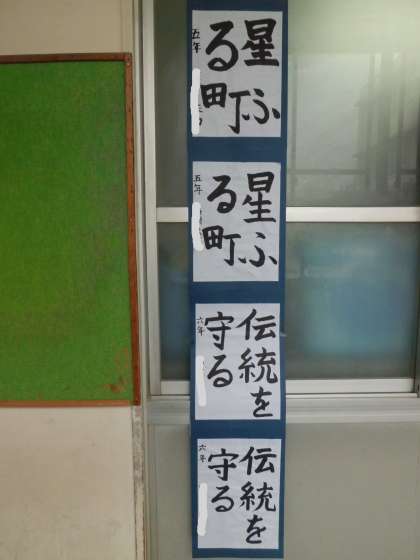 星ふ
る町
五年
星ふ
る町
五年
伝統を
守る
六年
伝統を
守る
六年